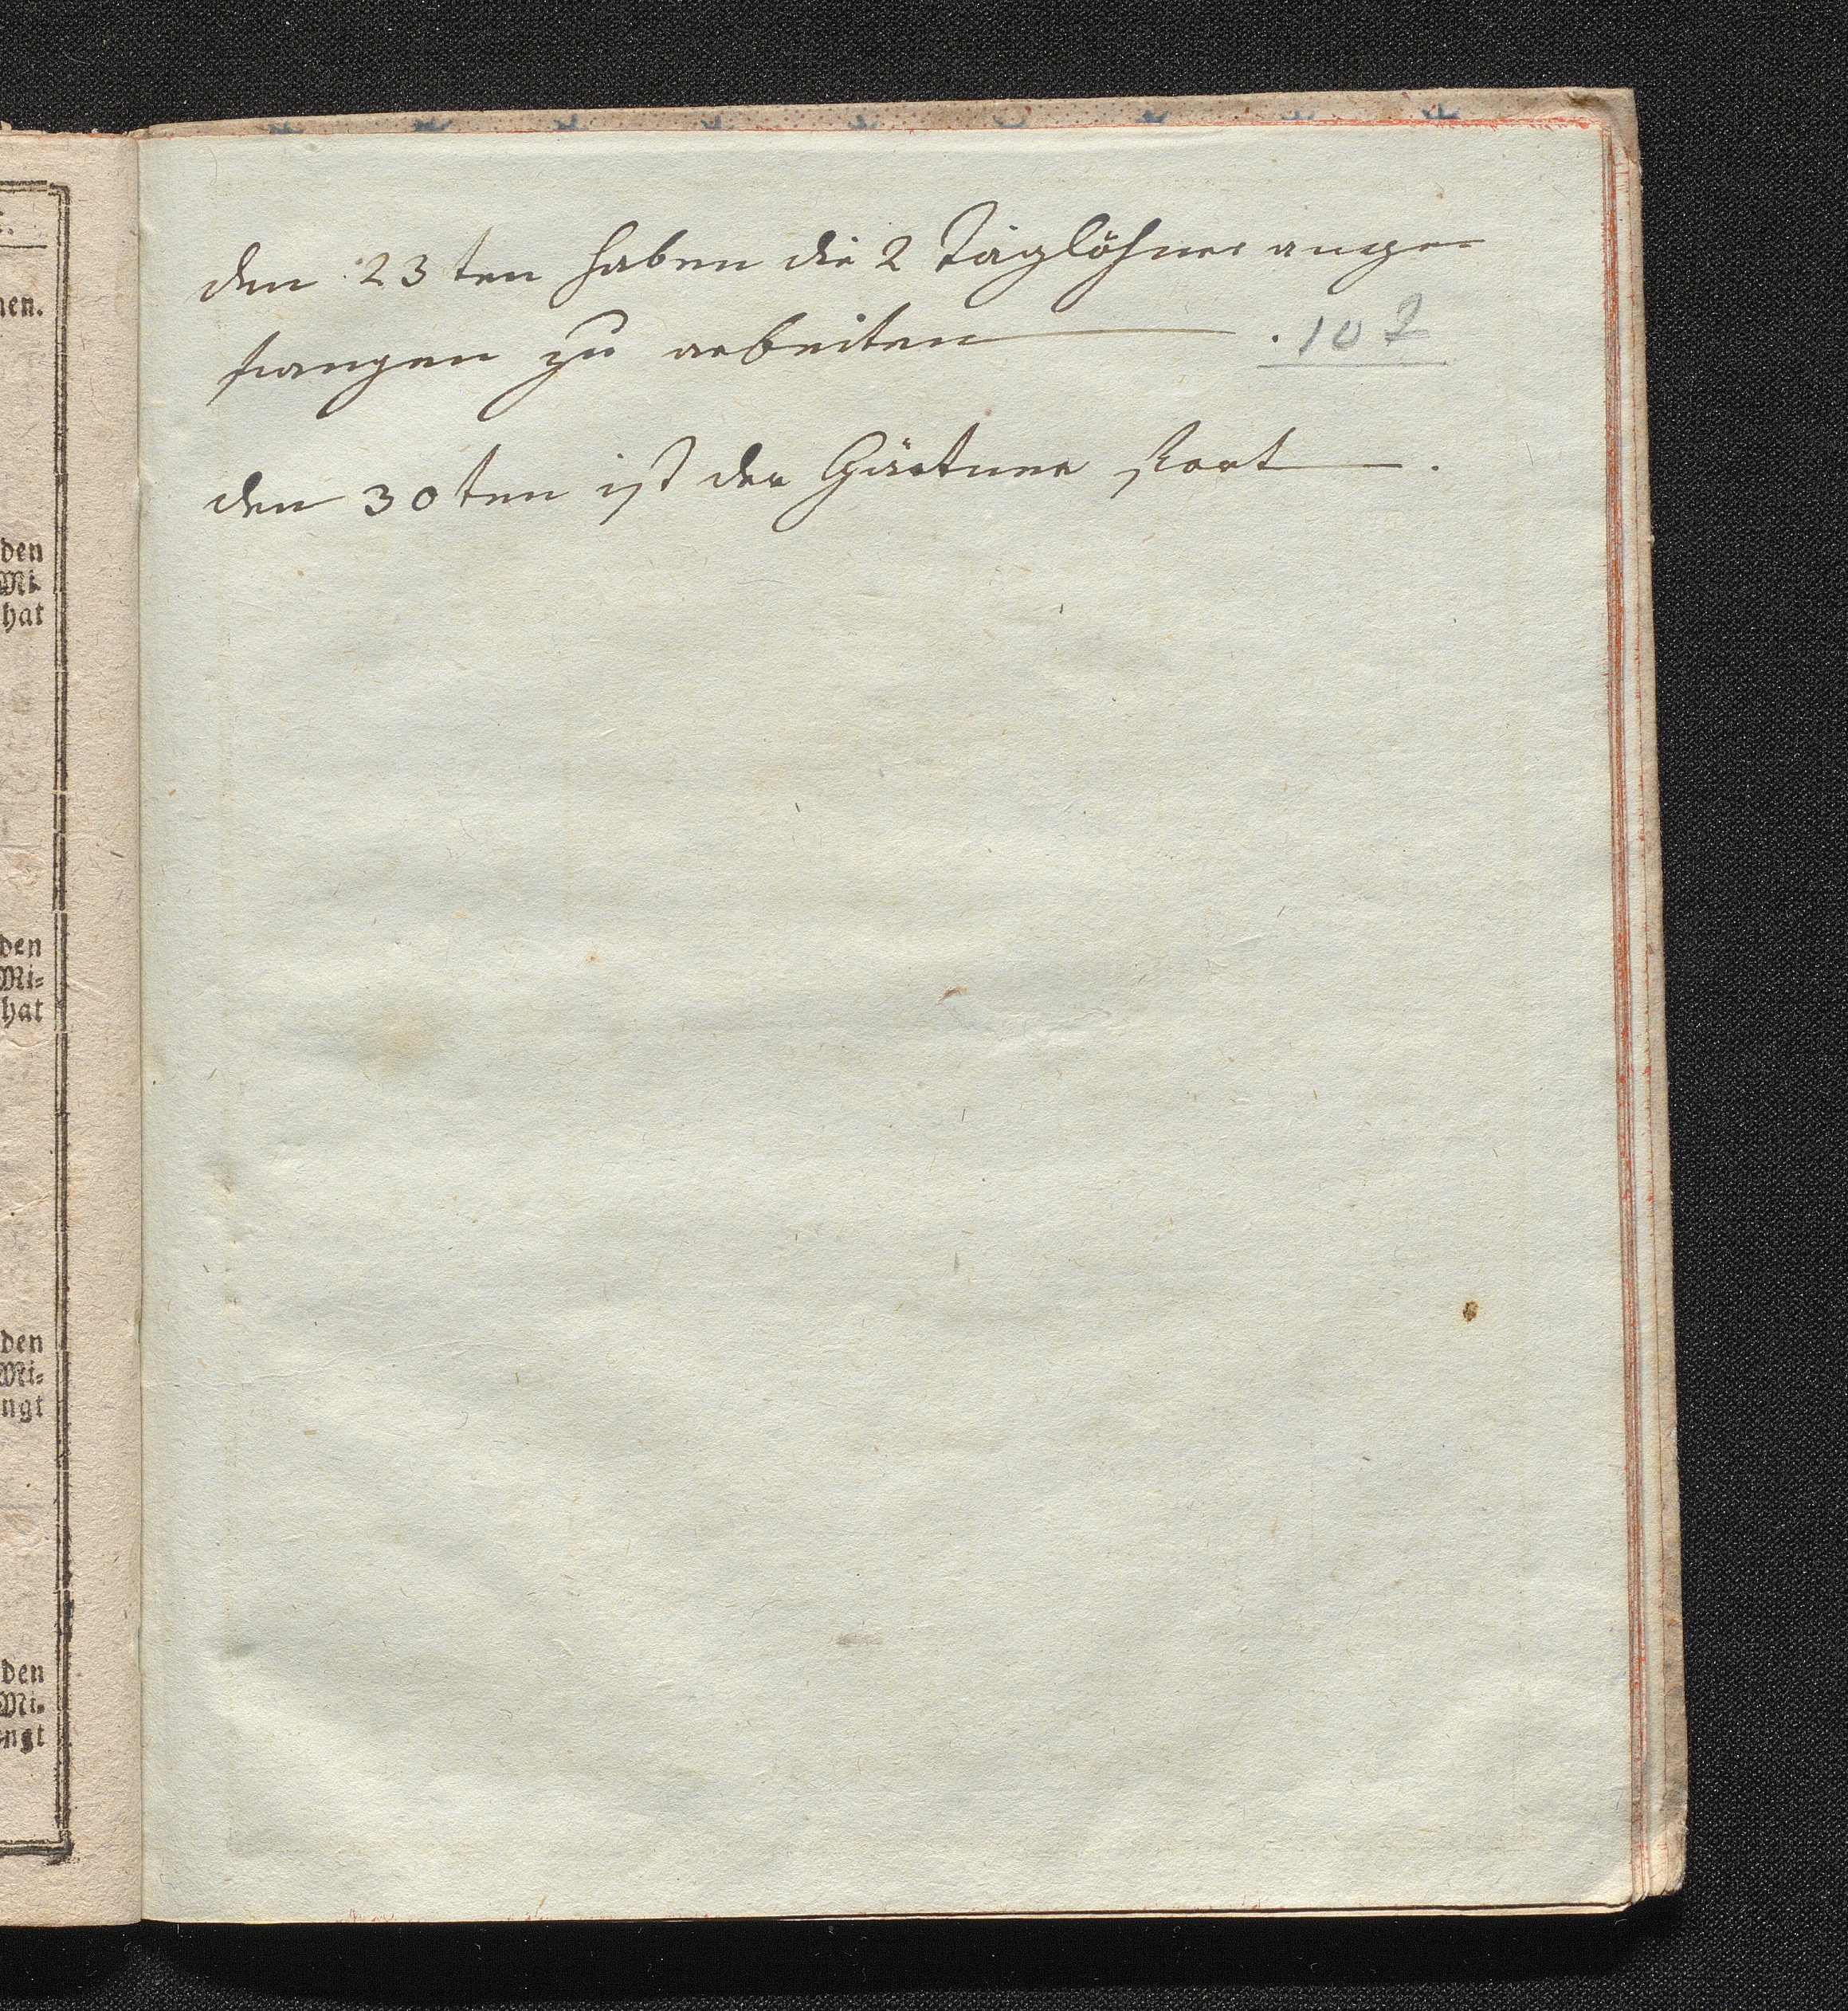 den 23ten haben die 2 Täglöhner ange
fangen zu arbeiten —— . 107
den 30ten ist der Gärtner fort —— .
nen.
den
Mi-
hat
den
Mi-
hat
den
Mi-
ngt
den
Mi-
ngt